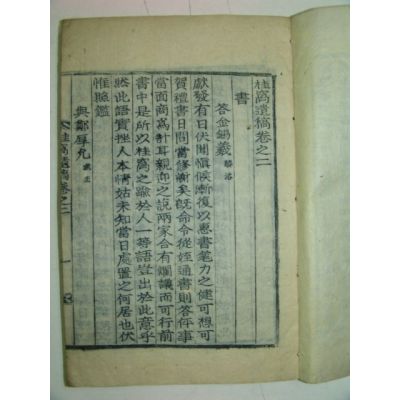 桂窩遺稿卷之二
書
答金錫羲 略洛
獻發有日伏聞愼候漸復以惠書笔力之健可想可
賀禮書日間當修謝矣旣命令從姪通書則答伻事
當面商爲計耳親迎之說兩家合有爛議而可行前
書中是所以桂窩之踰於人一等語豈出於此意乎
然此語實性人本情姑未知當日處置之何居也伏
惟照鑑
與鄭犀允
桂窩遺稿卷之二
一